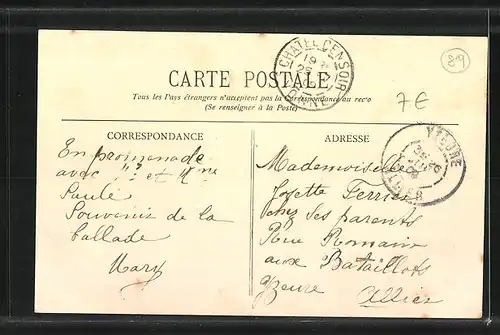 CHATEL CENSOIR
YONNE
CARTE POSTALE
89
7E
Tous les Pays étrangers n'acceptent pas la Correspondance au recto
(Se renseigner à la Poste)
CORRESPONDANCE
En promenade
avec Mme
Souvenir de la
ballade
Mary
ADRESSE
YZEURE
ALLIER
Mademoiselle
Joyette Ferrier
chez ses parents
Rue Romaine
aux Bataillots
Yzeure Allier